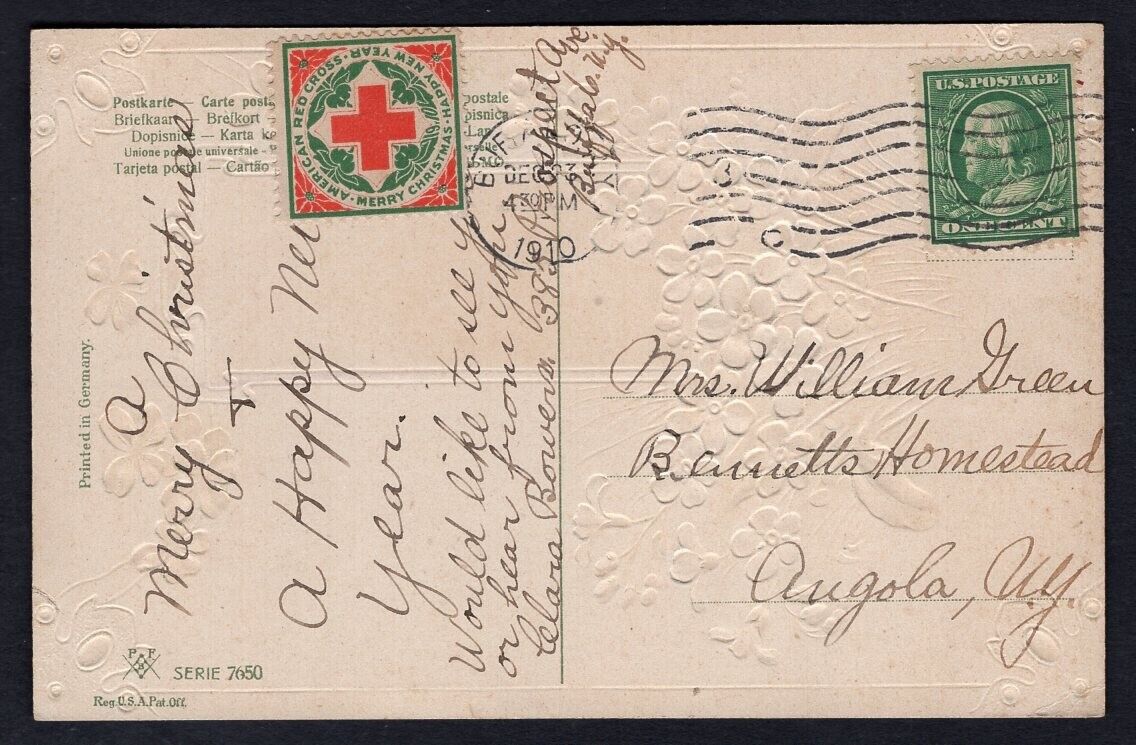 Postkarte — Carte posta
Briefkaart — Brefkort —
Dopisnice — Karta ko
Unione postale universale —
Tarjeta postal — Cartão
postale
pisnica
AMERICAN RED CROSS · HAPPY NEW YEAR
· MERRY CHRISTMAS ·
DEC 23
4 30 PM
1910
U.S. POSTAGE
ONE CENT
Printed in Germany.
A
Merry Christmas
+
A Happy New
Year.
Would like to see you
or hear from you
Clara Bowers 38 Prospect Ave
Buffalo. N.Y.
Mrs. William Green
Bennetts Homestead
Angola, N.Y.
P F
B
SERIE 7650
Reg. U.S.A. Pat. Off.